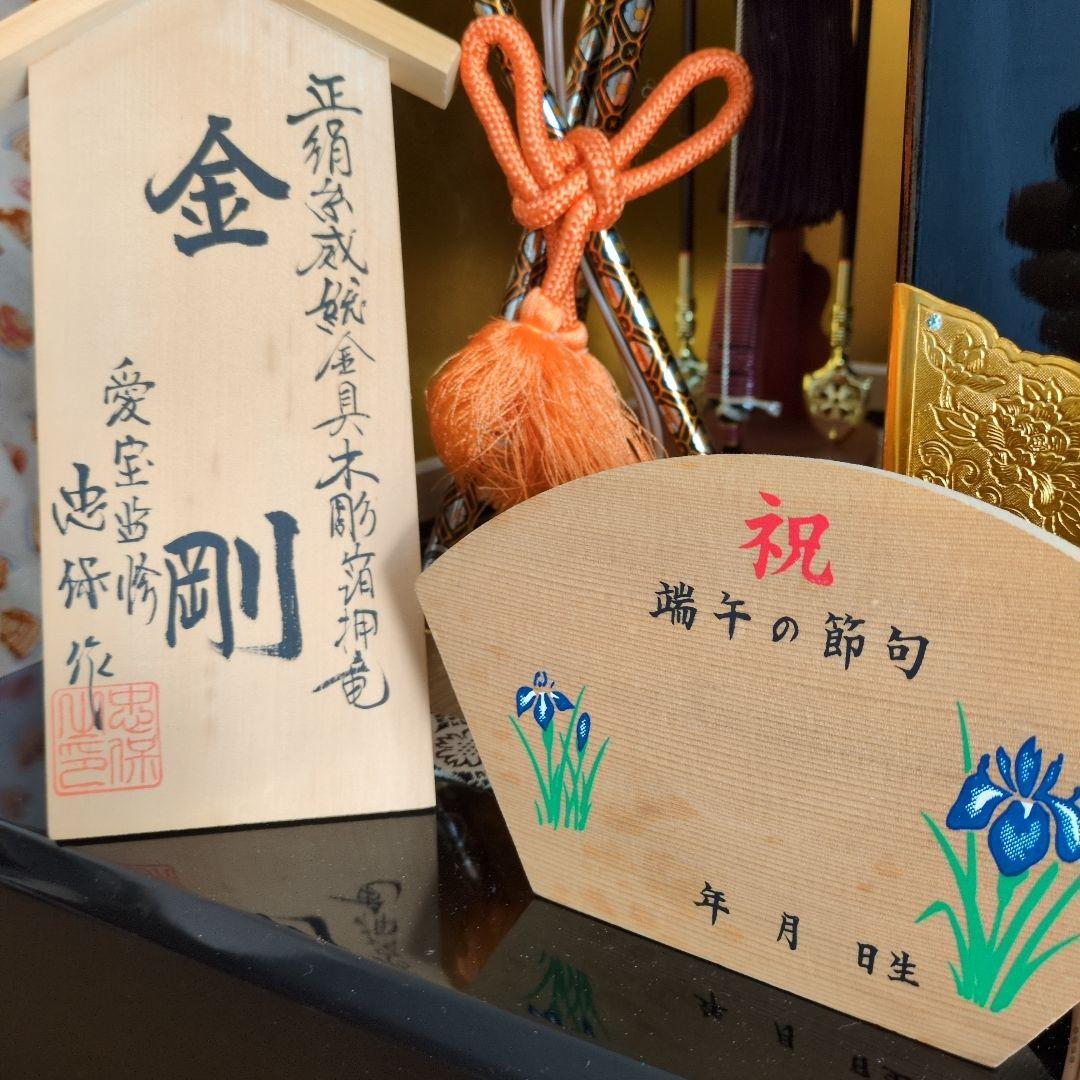 正絹糸威総金具木彫箔押竜
金剛
愛宝監修
忠保作
忠保之印
祝
端午の節句
年 月 日生